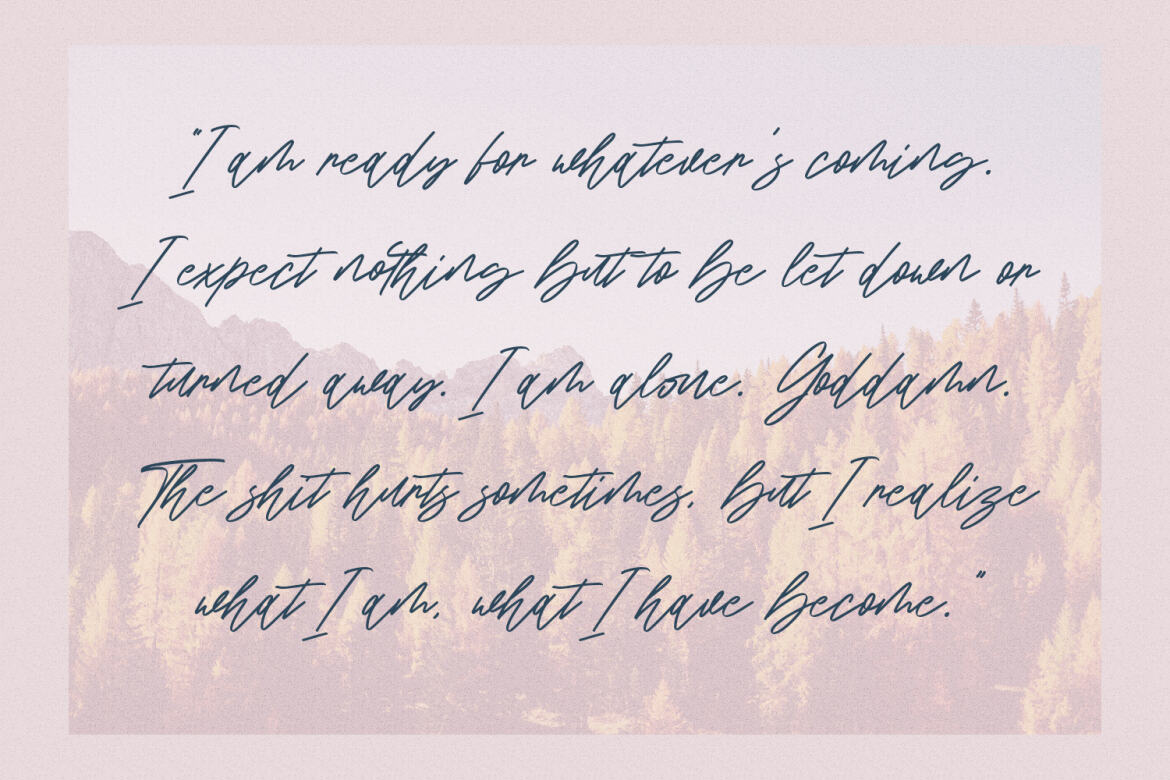 "I am ready for whatever's coming.
I expect nothing but to be let down or
turned away. I am alone. Goddamn.
The shit hurts sometimes, but I realize
what I am, what I have become."